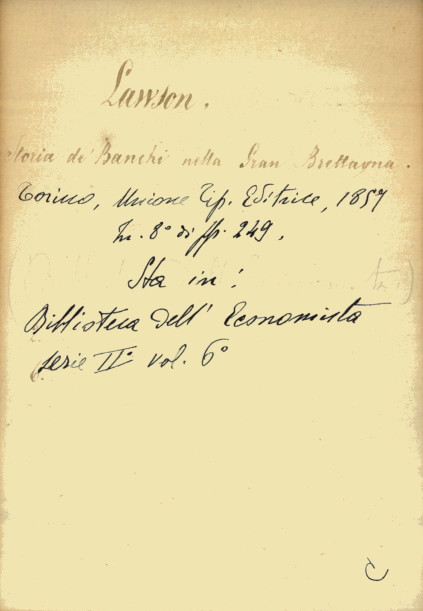 Lawson.
Storia de' Banchi nella Gran Brettagna.
Torino, Unione Tip. Editrice, 1857
In. 8° di pp. 249.
Sta in:
Biblioteca dell' Economista
serie IIª vol. 6°